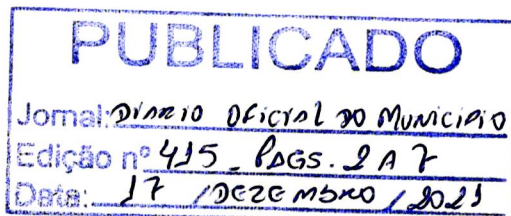 PUBLICADO
Jornal: DIARIO OFICIAL DO MUNICIPIO
Edição nº 415 - PAGS. 2 A 7
Data: 17 / DEZEMBRO / 2021